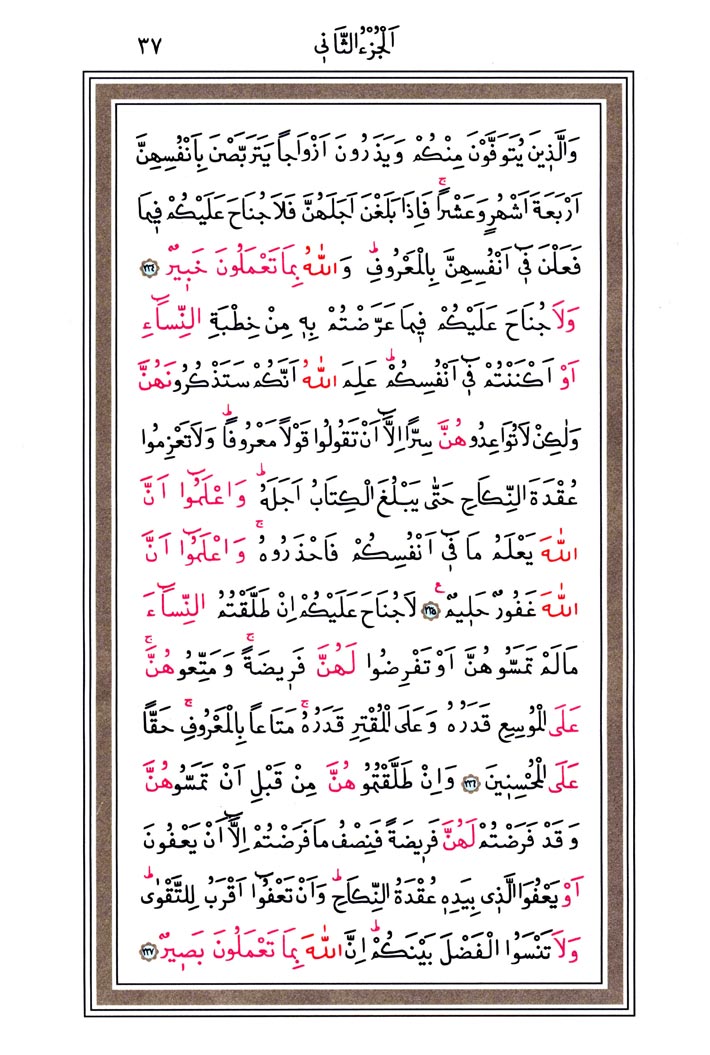 اَلْجُزْءُ الثَّانٖي ٣٧
وَالَّذٖينَ يُتَوَفَّوْنَ مِنْكُمْ وَيَذَرُونَ اَزْوَاجاً يَتَرَبَّصْنَ بِاَنْفُسِهِنَّ
اَرْبَعَةَ اَشْهُرٍ وَعَشْراًۚ فَاِذَا بَلَغْنَ اَجَلَهُنَّ فَلَا جُنَاحَ عَلَيْكُمْ فٖيمَا
فَعَلْنَ فٖٓي اَنْفُسِهِنَّ بِالْمَعْرُوفِؕ وَاللّٰهُ بِمَا تَعْمَلُونَ خَبٖيرٌ ﴿٢٣٤﴾
وَلَا جُنَاحَ عَلَيْكُمْ فٖيمَا عَرَّضْتُمْ بِهٖ مِنْ خِطْبَةِ النِّسَٓاءِ
اَوْ اَكْنَنْتُمْ فٖٓي اَنْفُسِكُمْؕ عَلِمَ اللّٰهُ اَنَّكُمْ سَتَذْكُرُونَهُنَّ
وَلٰكِنْ لَا تُوَاعِدُوهُنَّ سِراًّ اِلَّٓا اَنْ تَقُولُوا قَوْلاً مَعْرُوفاًؕ وَلَا تَعْزِمُوا
عُقْدَةَ النِّكَاحِ حَتّٰى يَبْلُغَ الْكِتَابُ اَجَلَهُؕ وَاعْلَمُٓوا اَنَّ
اللّٰهَ يَعْلَمُ مَا فٖٓي اَنْفُسِكُمْ فَاحْذَرُوهُۚ وَاعْلَمُٓوا اَنَّ
اللّٰهَ غَفُورٌ حَلٖيمٌࣖ ﴿٢٣٥﴾ لَا جُنَاحَ عَلَيْكُمْ اِنْ طَلَّقْتُمُ النِّسَٓاءَ
مَا لَمْ تَمَسُّوهُنَّ اَوْ تَفْرِضُوا لَهُنَّ فَرٖيضَةًۚ وَمَتِّعُوهُنَّۚ
عَلَى الْمُوسِعِ قَدَرُهُ وَعَلَى الْمُقْتِرِ قَدَرُهُۚ مَتَاعاً بِالْمَعْرُوفِۚ حَقاًّ
عَلَى الْمُحْسِنٖينَ ﴿٢٣٦﴾ وَاِنْ طَلَّقْتُمُوهُنَّ مِنْ قَبْلِ اَنْ تَمَسُّوهُنَّ
وَقَدْ فَرَضْتُمْ لَهُنَّ فَرٖيضَةً فَنِصْفُ مَا فَرَضْتُمْ اِلَّٓا اَنْ يَعْفُونَ
اَوْ يَعْفُوَا الَّذٖي بِيَدِهٖ عُقْدَةُ النِّكَاحِؕ وَاَنْ تَعْفُٓوا اَقْرَبُ لِلتَّقْوٰىؕ
وَلَا تَنْسَوُا الْفَضْلَ بَيْنَكُمْؕ اِنَّ اللّٰهَ بِمَا تَعْمَلُونَ بَصٖيرٌ ﴿٢٣٧﴾